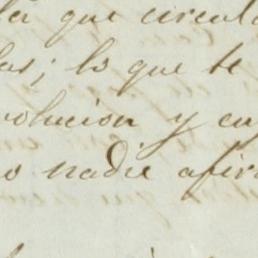 que circul
las; lo que te
volucion y en
o nadie afir